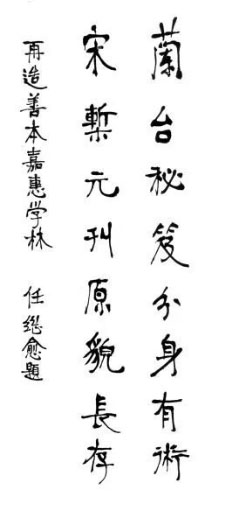 蘭台秘笈分身有術
宋槧元刊原貌長存
再造善本嘉惠学林 任继愈題